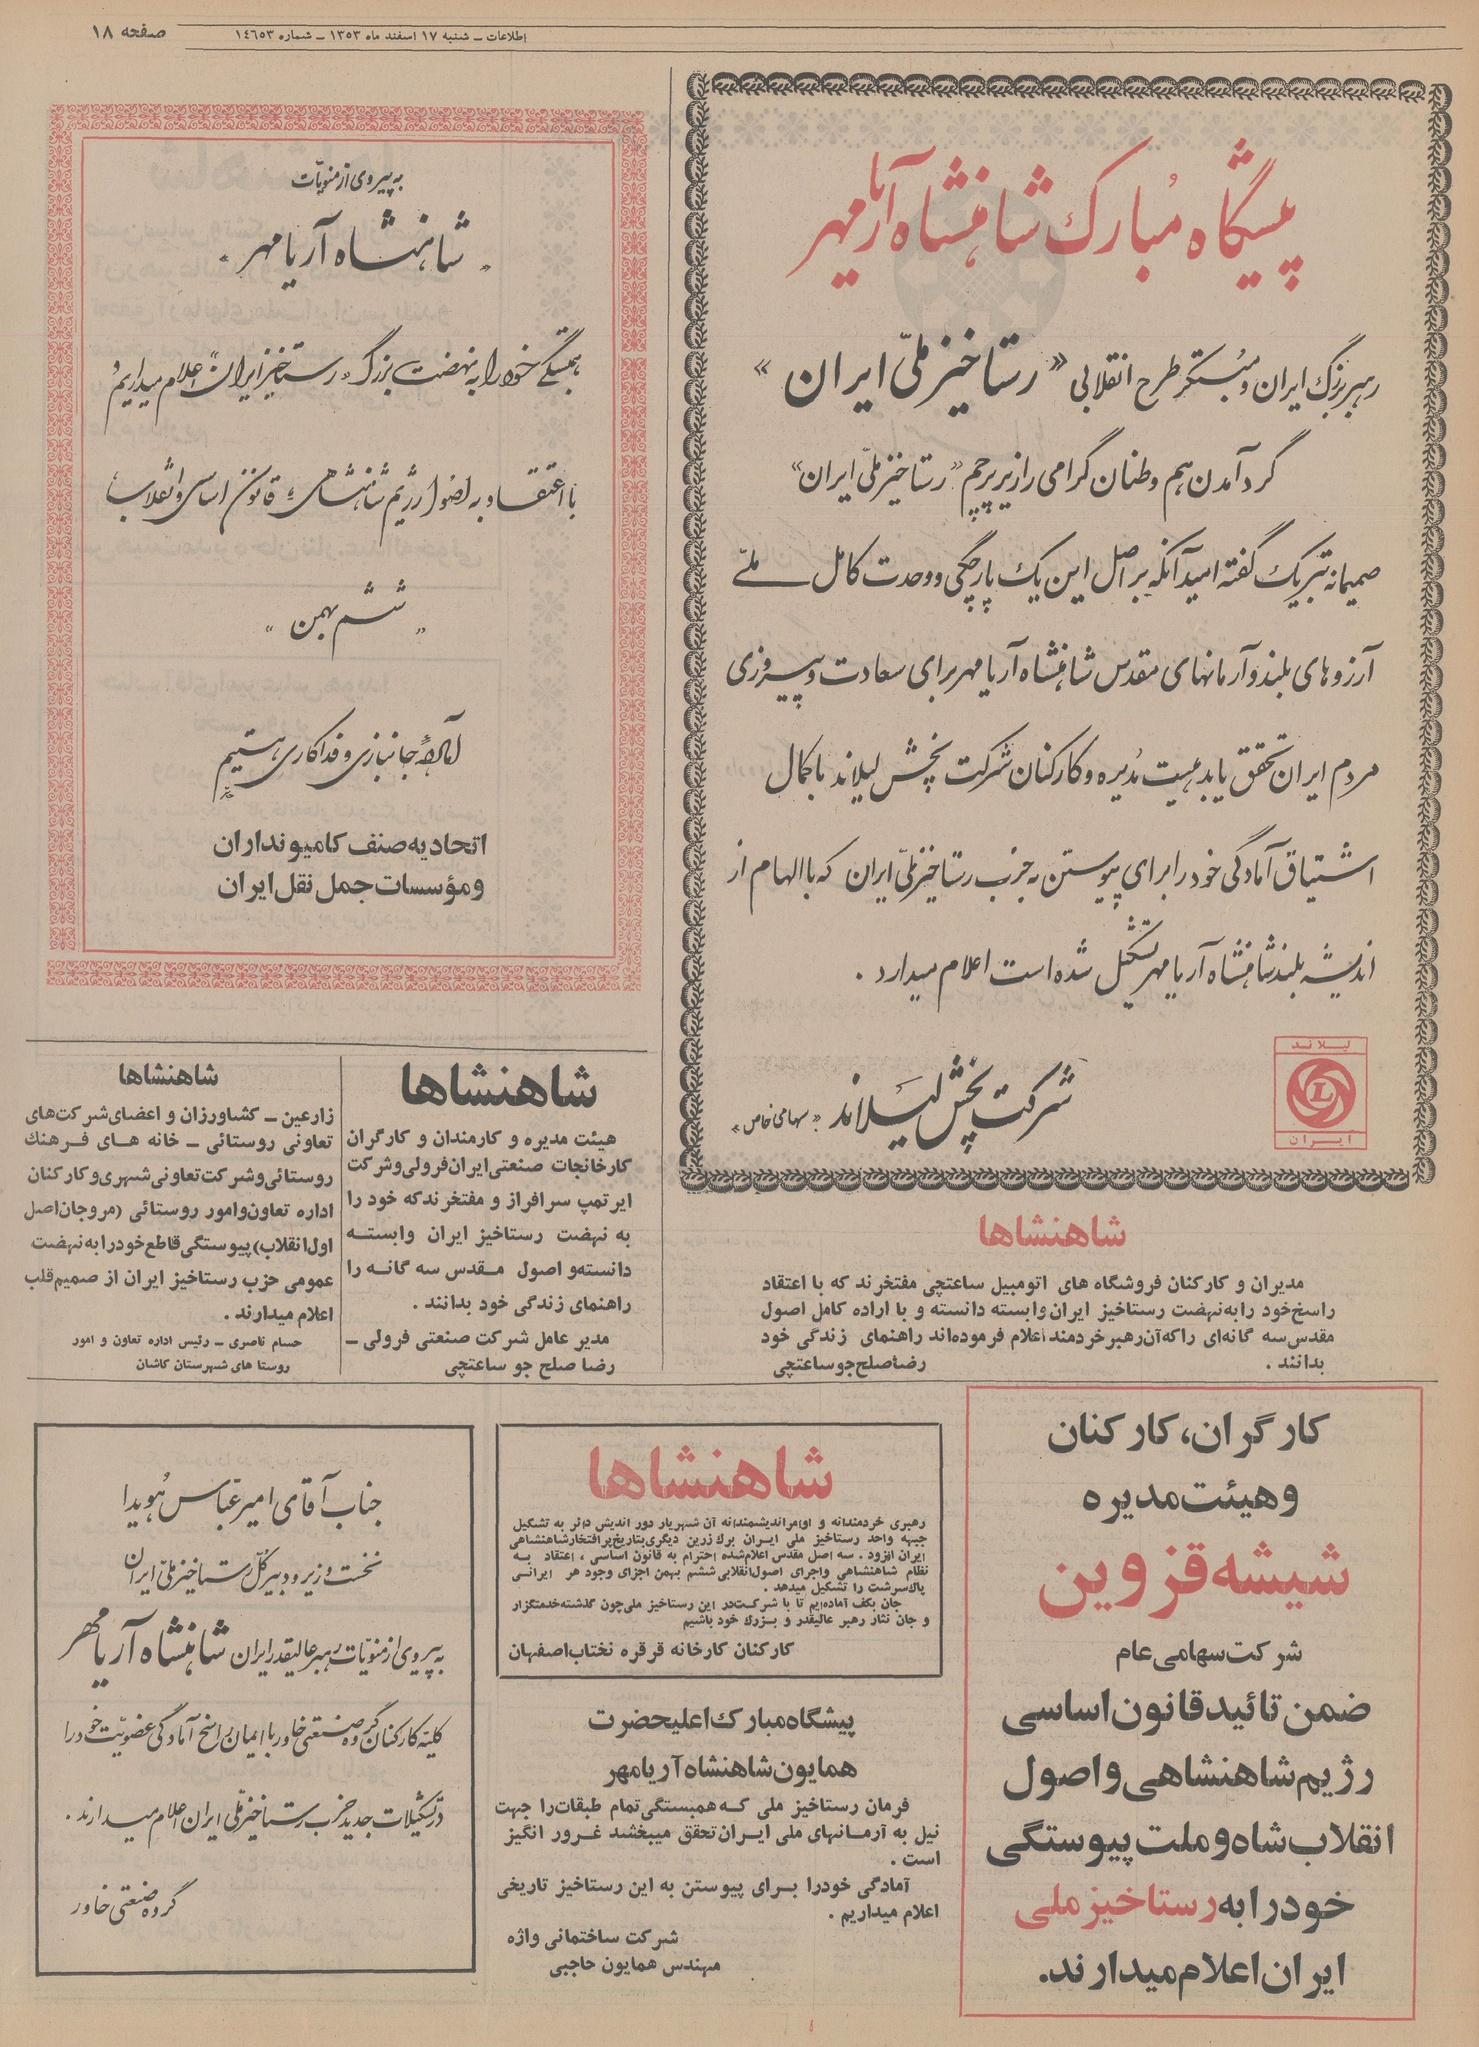 اطلاعات ـ شنبه ۱۷ اسفند ماه ۱۳۵۳ ـ شماره ۱٤٦٥۳
صفحه ۱۸
پیشگاه مبارک شاهنشاه آریامهر
رهبر بزرگ ایران و مبتکر طرح انقلابی «رستاخیز ملّی ایران»
گرد آمدن هم وطنان گرامی را زیر پرچم «رستاخیز ملّی ایران»
صمیمانه تبریک گفته امید آنکه بر اصل این یک پارچگی و وحدت کامل ملّی
آرزوهای بلند و آرمانهای مقدس شاهنشاه آریامهر برای سعادت و پیروزی
مردم ایران تحقق یابد هیئت مُدیره و کارکنان شرکت پخش لیلاند با کمال
اشتیاق آمادگی خود را برای پیوستن به حزب رستاخیز ملّی ایران که با الهام از
اندیشه بلند شاهنشاه آریامهر تشکیل شده است اعلام میدارد .
شرکت پخش لیلاند «سهامی خاص»
لیلاند
L
ایران
به پیروی از منویّات
شاهنشاه آریامهر
همبستگی خود را به نهضت بزرگ «رستاخیز ایران» اعلام میداریم و
با اعتقاد به اصول رژیم شاهنشاهی و قانون اساسی و انقلاب
«ششم بهمن»
آماده جانبازی و فداکاری هستیم
اتحادیه صنف کامیونداران
ومؤسسات حمل نقل ایران
شاهنشاها
هیئت مدیره و کارمندان و کارگران
کارخانجات صنعتی ایران فرولی و شرکت
ایر تمپ سرافراز و مفتخرند که خود را
به نهضت رستاخیز ایران وابسته
دانسته و اصول مقدس سه گانه را
راهنمای زندگی خود بدانند .
مدیر عامل شرکت صنعتی فرولی ـ
رضا صلح جو ساعتچی
شاهنشاها
زارعین ـ کشاورزان و اعضای شرکت های
تعاونی روستائی ـ خانه های فرهنگ
روستائی و شرکت تعاونی شهری و کارکنان
اداره تعاون و امور روستائی (مروجان اصل
اول انقلاب) پیوستگی قاطع خود را به نهضت
عمومی حزب رستاخیز ایران از صمیم قلب
اعلام میدارند .
حسام ناصری ـ رئیس اداره تعاون و امور
روستا های شهرستان کاشان
شاهنشاها
مدیران و کارکنان فروشگاه های اتومبیل ساعتچی مفتخرند که با اعتقاد
راسخ خود را به نهضت رستاخیز ایران وابسته دانسته و با اراده کامل اصول
مقدس سه گانه ای را که آن رهبر خردمند اعلام فرموده اند راهنمای زندگی خود
بدانند .
رضا صلح جو ساعتچی
کارگران، کارکنان
و هیئت مدیره
شیشه قزوین
شرکت سهامی عام
ضمن تائید قانون اساسی
رژیم شاهنشاهی و اصول
انقلاب شاه و ملت پیوستگی
خود را به رستاخیز ملی
ایران اعلام میدارند.
شاهنشاها
رهبری خردمندانه و اوامر اندیشمندانه آن شهریار دور اندیش دائر به تشکیل
جبهه واحد رستاخیز ملی ایران برگ زرین دیگری بتاریخ پر افتخار شاهنشاهی
ایران افزود . سه اصل مقدس اعلام شده احترام به قانون اساسی ، اعتقاد به
نظام شاهنشاهی و اجرای اصول انقلابی ششم بهمن اجزای وجود هر ایرانی
پاک سرشت را تشکیل میدهد .
جان بکف آماده ایم تا با شرکت در این رستاخیز ملی چون گذشته خدمتگزار
و جان نثار رهبر عالیقدر و بزرگ خود باشیم
کارکنان کارخانه قرقره نختاب اصفهان
پیشگاه مبارک اعلیحضرت
همایون شاهنشاه آریامهر
فرمان رستاخیز ملی که همبستگی تمام طبقات را جهت
نیل به آرمانهای ملی ایران تحقق میبخشد غرور انگیز
است .
آمادگی خود را برای پیوستن به این رستاخیز تاریخی
اعلام میداریم .
شرکت ساختمانی واژه
مهندس همایون حاجبی
جناب آقای امیر عبّاس هُویدا
نخست وزیر و دبیر کلّ رستاخیز ملّی ایران
به پیروی از منویّات رهبر عالیقدر ایران شاهنشاه آریامهر
کلیّه کارکنان گروه صنعتی خاور با ایمان راسخ آمادگی عضویّت خود را
در تشکیلات جدید حزب رستاخیز ملّی ایران اعلام میدارند .
گروه صنعتی خاور